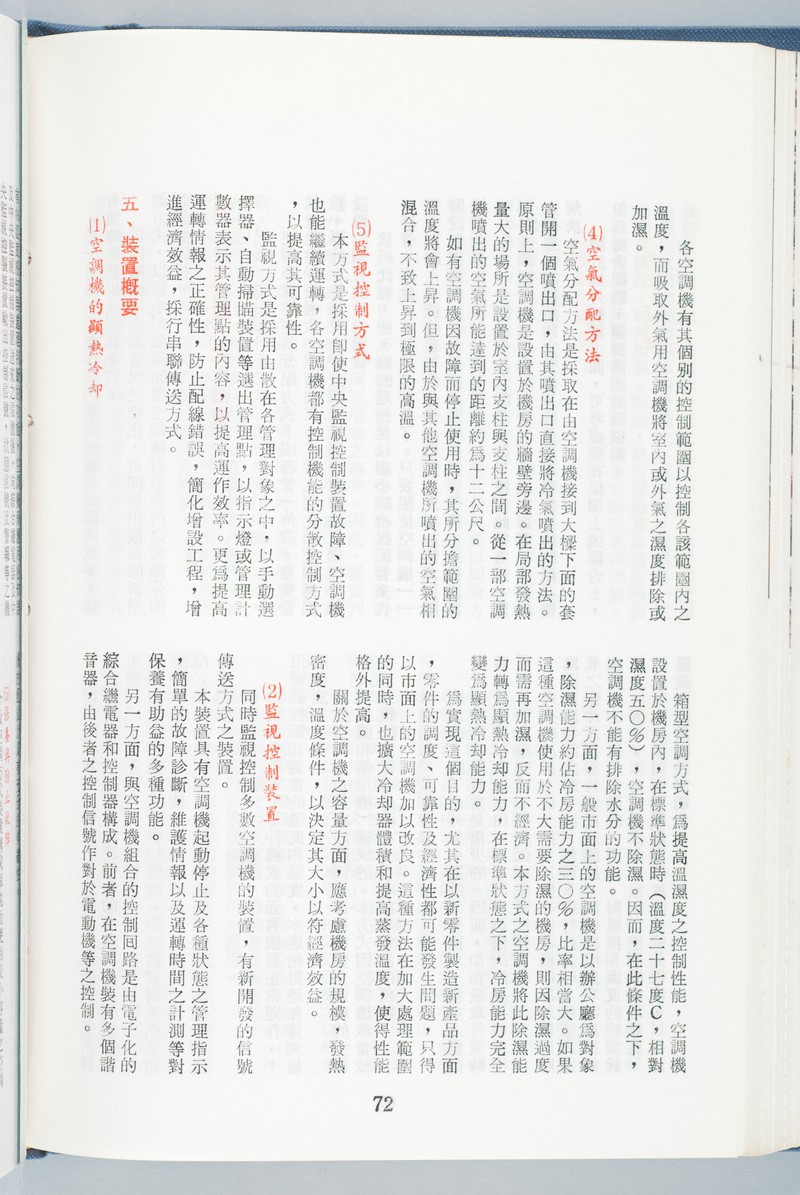 各空調機有其個別的控制範圍以控制各該範圍內之
溫度，而吸取外氣用空調機將室內或外氣之濕度排除或
加濕。
⑷空氣分配方法
空氣分配方法是採取在由空調機接到大樑下面的套
管開一個噴出口，由其噴出口直接將冷氣噴出的方法。
原則上，空調機是設置於機房的牆壁旁邊。在局部發熱
量大的場所是設置於室內支柱與支柱之間。從一部空調
機噴出的空氣所能達到的距離約爲十二公尺。
如有空調機因故障而停止使用時，其所分擔範圍的
溫度將會上昇。但，由於與其他空調機所噴出的空氣相
混合，不致上昇到極限的高溫。
⑸監視控制方式
本方式是採用卽使中央監視控制裝置故障、空調機
也能繼續運轉，各空調機都有控制機能的分散控制方式
，以提高其可靠性。
監視方式是採用由散在各管理對象之中，以手動選
擇器、自動掃瞄裝置等選出管理點，以指示燈或管理計
數器表示其管理點的內容，以提高運作效率。更爲提高
運轉情報之正確性，防止配線錯誤，簡化增設工程，增
進經濟效益，採行串聯傳送方式。
五、裝置概要
⑴空調機的顯熱冷却
箱型空調方式，爲提高溫濕度之控制性能，空調機
設置於機房內，在標準狀態時（溫度二十七度C，相對
濕度五〇％），空調機不除濕。因而，在此條件之下，
空調機不能有排除水分的功能。
另一方面，一般市面上的空調機是以辦公廳爲對象
，除濕能力約佔冷房能力之三〇％，比率相當大。如果
這種空調機使用於不大需要除濕的機房，則因除濕過度
而需再加濕，反而不經濟。本方式之空調機將此除濕能
力轉爲顯熱冷却能力，在標準狀態之下，冷房能力完全
變爲顯熱冷却能力。
爲實現這個目的，尤其在以新零件製造新產品方面
，零件的調度、可靠性及經濟性都可能發生問題，只得
以市面上的空調機加以改良。這種方法在加大處理範圍
的同時，也擴大冷却器體積和提高蒸發溫度，使得性能
格外提高。
關於空調機之容量方面，應考慮機房的規模，發熱
密度，溫度條件，以決定其大小以符經濟效益。
⑵監視控制裝置
同時監視控制多數空調機的裝置，有新開發的信號
傳送方式之裝置。
本裝置具有空調機起動停止及各種狀態之管理指示
，簡單的故障診斷，維護情報以及運轉時間之計測等對
保養有助益的多種功能。
另一方面，與空調機組合的控制回路是由電子化的
綜合繼電器和控制器構成。前者，在空調機裝有多個諧
音器，由後者之控制信號作對於電動機等之控制。
72